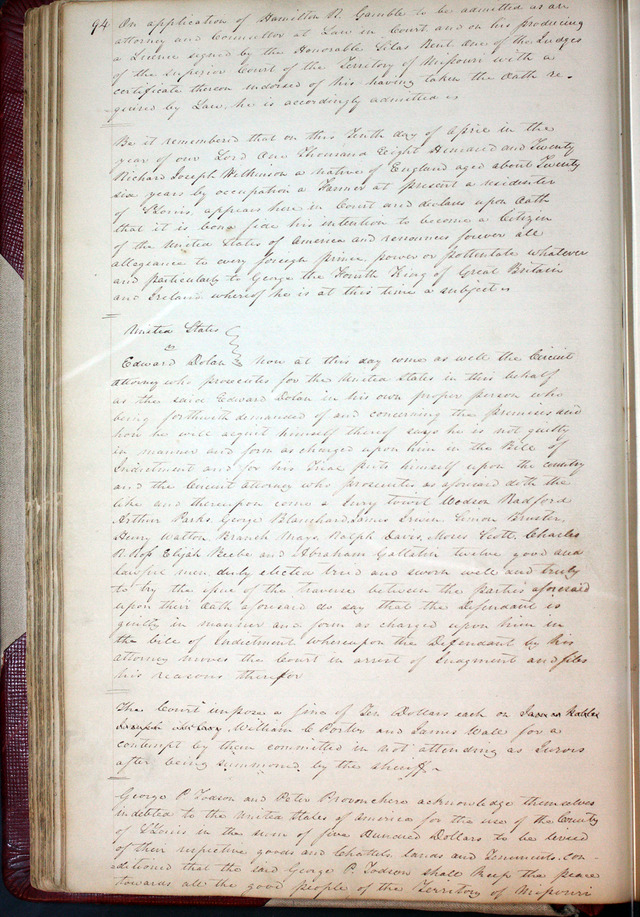 94 On application of Hamilton R. Gamble to be admitted as an
attorney and Councellor at Law in Court and on his producing
a Licence signed by the Honorable Silas Bent one of the Judges
of the Superior Court of the Territory of Missouri with a
certificate thereon endorsed of his having taken the Oath re-
quired by Law, he is accordingly admitted
Be it remembered that on this Tenth day of April in the
year of our Lord One Thousand Eight Hundred and Twenty
Richard Joseph Wilkinson a native of England aged about Twenty
six years by occupation a Farmer at present a residenter
of St Louis, appears here in Court and declares upon Oath
that it is bona fide his intention to become a Citizen
of the United States of America and renounces forever all
allegiance to every foreign prince power or potentate whatever
and particularly to George the Fourth King of Great Britain
and Ireland whereof he is at this time a subject
United States
vs
Edward Dolan now at this day come as well the Circuit
attorney who prosecutes for the United States in this behalf
as the said Edward Dolan in his own proper person who
being forthwith demanded of and concerning the premises and
how he will acquit himself thereof says he is not guilty
in manner and form as charged upon him in the Bill of
Indictment and for his Trial puts himself upon the country
and the Circuit attorney who prosecutes as aforesaid doth the
like and thereupon come a Jury towit Radford
Arthur Parks, George Blanchard James Irwin, Simon
Henry Walton Branch Mays Ralph Davis, Moses Scott, Charles
R Ross Elijah Beebe and Abraham Gallatin twelve good and
lawful men, duly elected tried and sworn well and truly
to try the issue of the traverse between the Parties aforesaid
upon their Oath aforesaid do say that the defendant is
guilty in manner and form as charged upon him in
the bill of Indictment whereupon the Defendant by his
attorney moves the Court in arrest of Judgment and files
his reasons therefor
The Court impose a fine of Ten Dollars each on
Joseph William C Porter and James Wall for a
contempt by them committed in not attending as Jurors
after being summoned by the sheriff
George P. Todson and Peter Provonchere acknowledge themselves
indebted to the United States of America for the use of the County
of St Louis in the sum of five Hundred Dollars to be levied
of their respective goods and Chattels lands and Tenements. con-
ditioned that the said George P. Todson shall keep the peace
towards all the good people of the Territory of Missouri